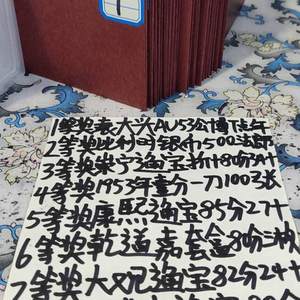 1
1等奖袁大头AU53公博
2等奖比利时银币500法郎
3等奖崇宁通宝折十80分
4等奖1953年壹分一刀100张
5等奖康熙通宝85分27十
6等奖乾道嘉套盒80分三枚
7等奖大观通宝82分24十